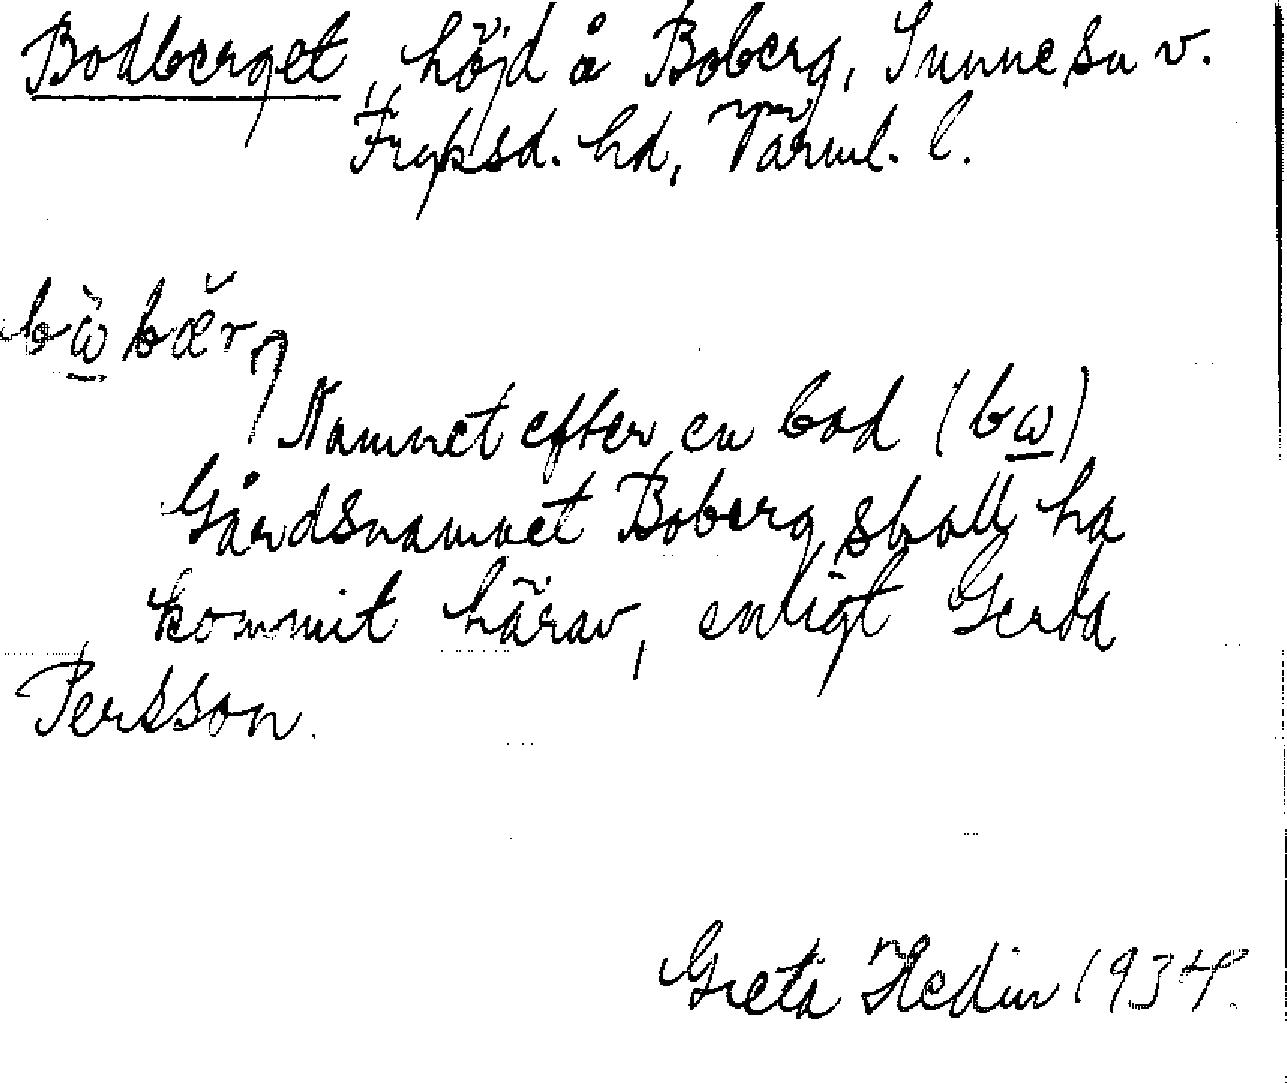 Bodberget, höjd å Boberg, Sunne sn v.
Fryksd. hd, Värml. l.
bὼbær
Namnet efter en bod (bω)
Gårdsnamnet Boberg skall ha
kommit härav, enligt Gerda
Persson.
Greta Hedin 1934.